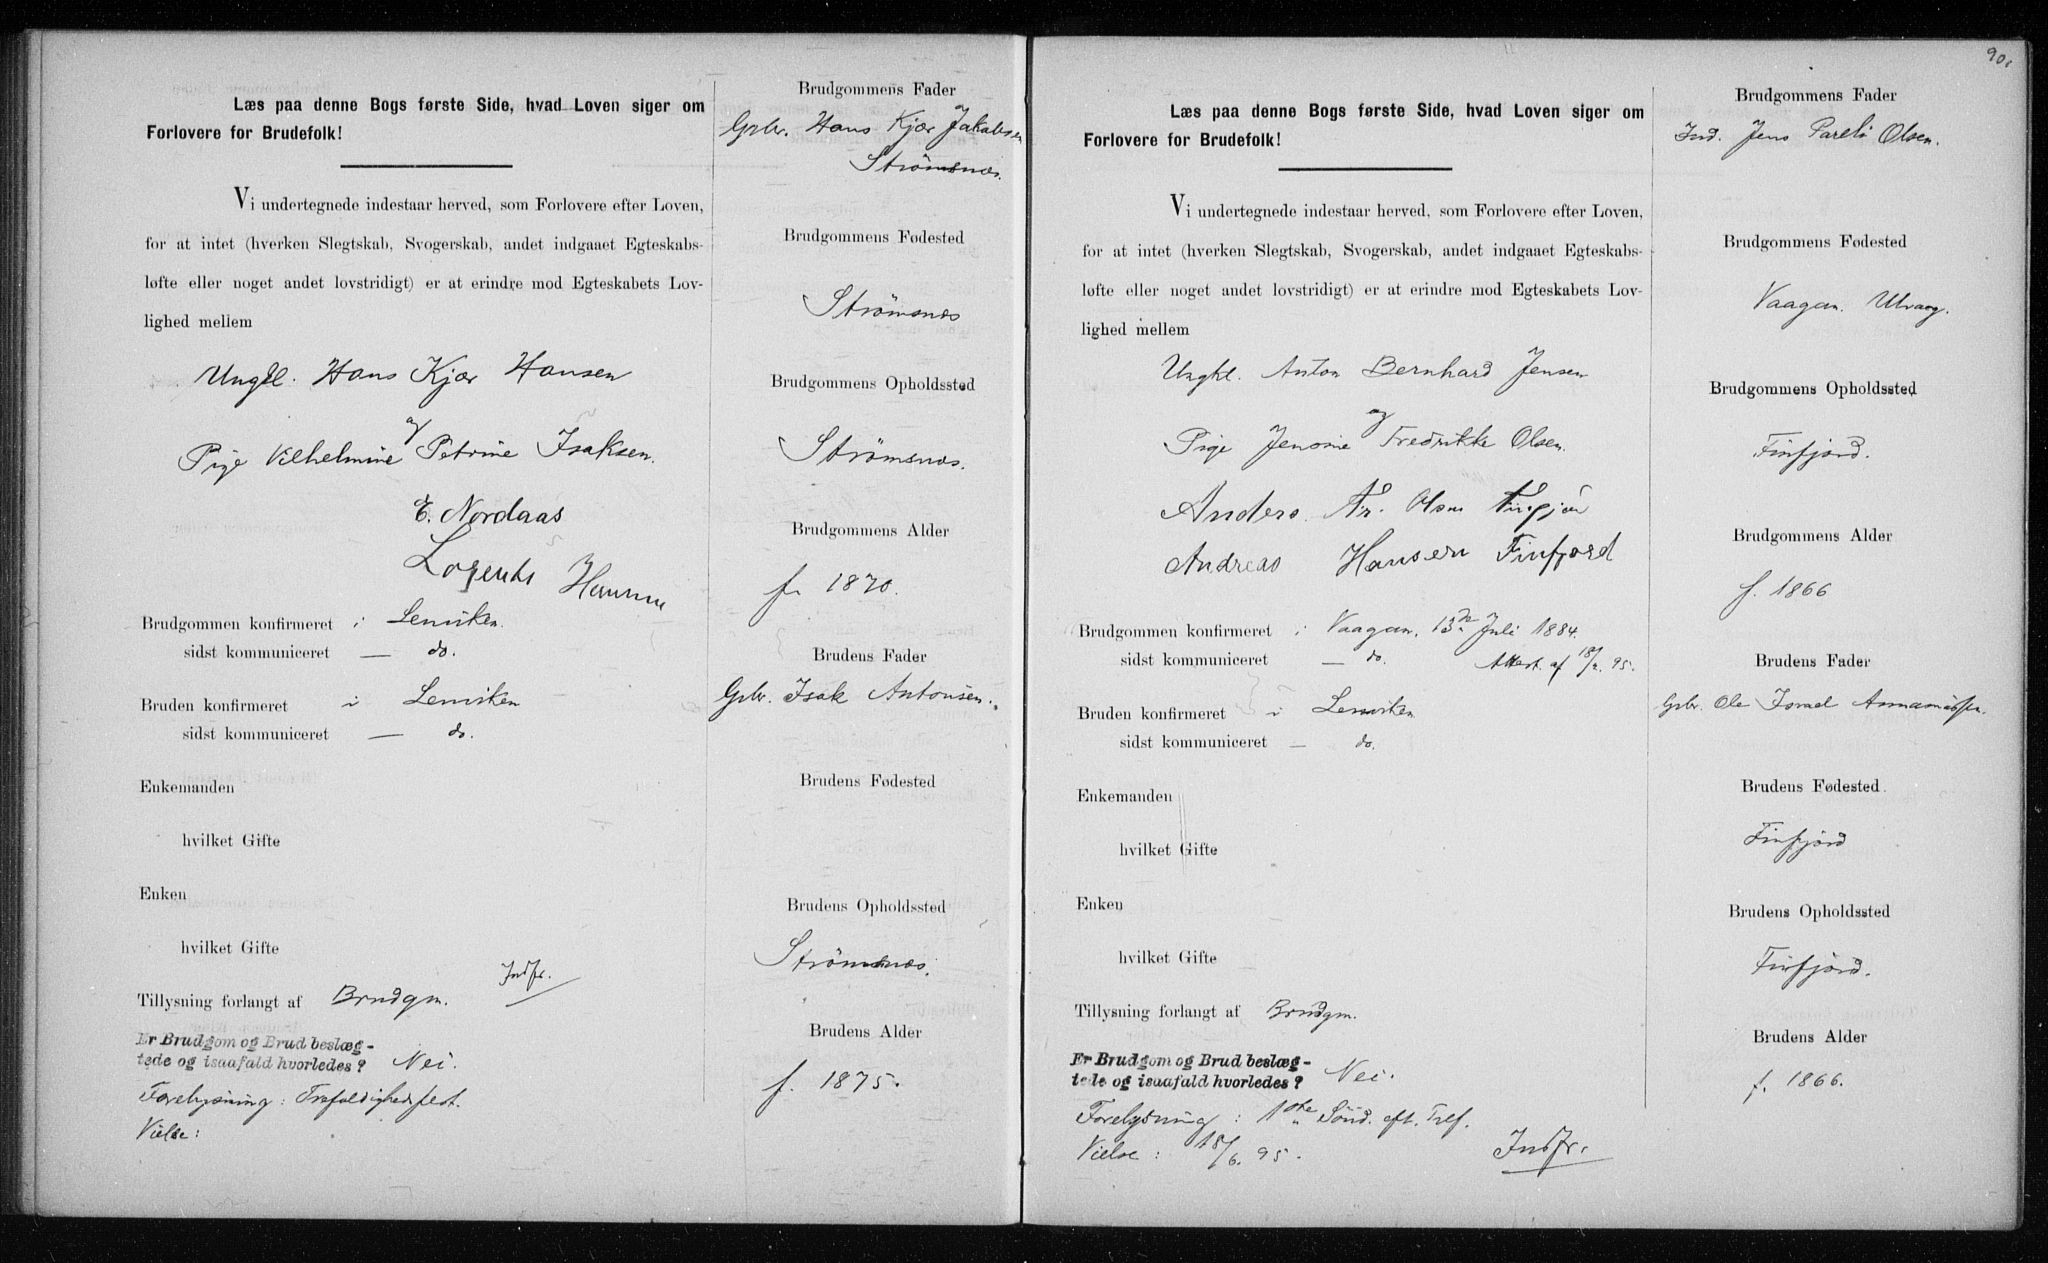 Læs paa denne Bogs første Side, hvad Loven siger om
Forlovere for Brudefolk!
Vi undertegnede indestaar herved, som Forlovere efter Loven,
for at intet (hverken Slegtskab, Svogerskab, andet indgaaet Egteskabs-
løfte eller noget andet lovstridigt) er at erindre mod Egteskabets Lov-
lighed mellem
Ungkl. Hans Kjær Hansen
og
Pige Vilhelmine Petrine Isaksen.
E. Nordaas
Lorents Hansen
Brudgommen konfirmeret i Lenviken.
sidst kommuniceret — do.
Bruden konfirmeret i Lenviken
sidst kommuniceret — do.
Enkemanden
hvilket Gifte
Enken
hvilket Gifte
Indfr.
Tillysning forlangt af Brudgm.
Er Brudgom og Brud beslæg-
tede og isaafald hvorledes? Nei.
Forelysning: Trefoldighedsfest.
Vielse:
Brudgommens Fader
Gbr. Hans Kjær Jakobsen
Strömsnes.
Brudgommens Fødested
Strömsnes
Brudgommens Opholdssted
Strömsnes.
Brudgommens Alder
f. 1870.
Brudens Fader
Gbr. Isak Antonsen.
Brudens Fødested
Brudens Opholdssted
Strömsnes.
Brudens Alder
f. 1875.
90.
Læs paa denne Bogs første Side, hvad Loven siger om
Forlovere for Brudefolk!
Vi undertegnede indestaar herved, som Forlovere efter Loven,
for at intet (hverken Slegtskab, Svogerskab, andet indgaaet Egteskabs-
løfte eller noget andet lovstridigt) er at erindre mod Egteskabets Lov-
lighed mellem
Ungkl. Anton Bernhard Jensen
og
Pige Jensine Fredrikke Olsen.
Anders Fr. Olsen
Andreas Hansen Finfjord
Brudgommen konfirmeret i Vaagan, 13de Juli 1884.
sidst kommuniceret — do. Attest. af 95.
Bruden konfirmeret i Lenviken
sidst kommuniceret — do.
Enkemanden
hvilket Gifte
Enken
hvilket Gifte
Tillysning forlangt af Brudgm.
Er Brudgom og Brud beslæg-
tede og isaafald hvorledes? Nei.
Forelysning: 1ste Sönd. eft. Tref.
Vielse: 18/6. 95. Indfr.
Brudgommens Fader
Ind. Jens Pareli Olsen.
Brudgommens Fødested
Vaagan. Ulvaag.
Brudgommens Opholdssted
Finfjord.
Brudgommens Alder
f. 1866
Brudens Fader
Gbr. Ole Israel
Brudens Fødested
Finfjord
Brudens Opholdssted
Finfjord.
Brudens Alder
f. 1866.